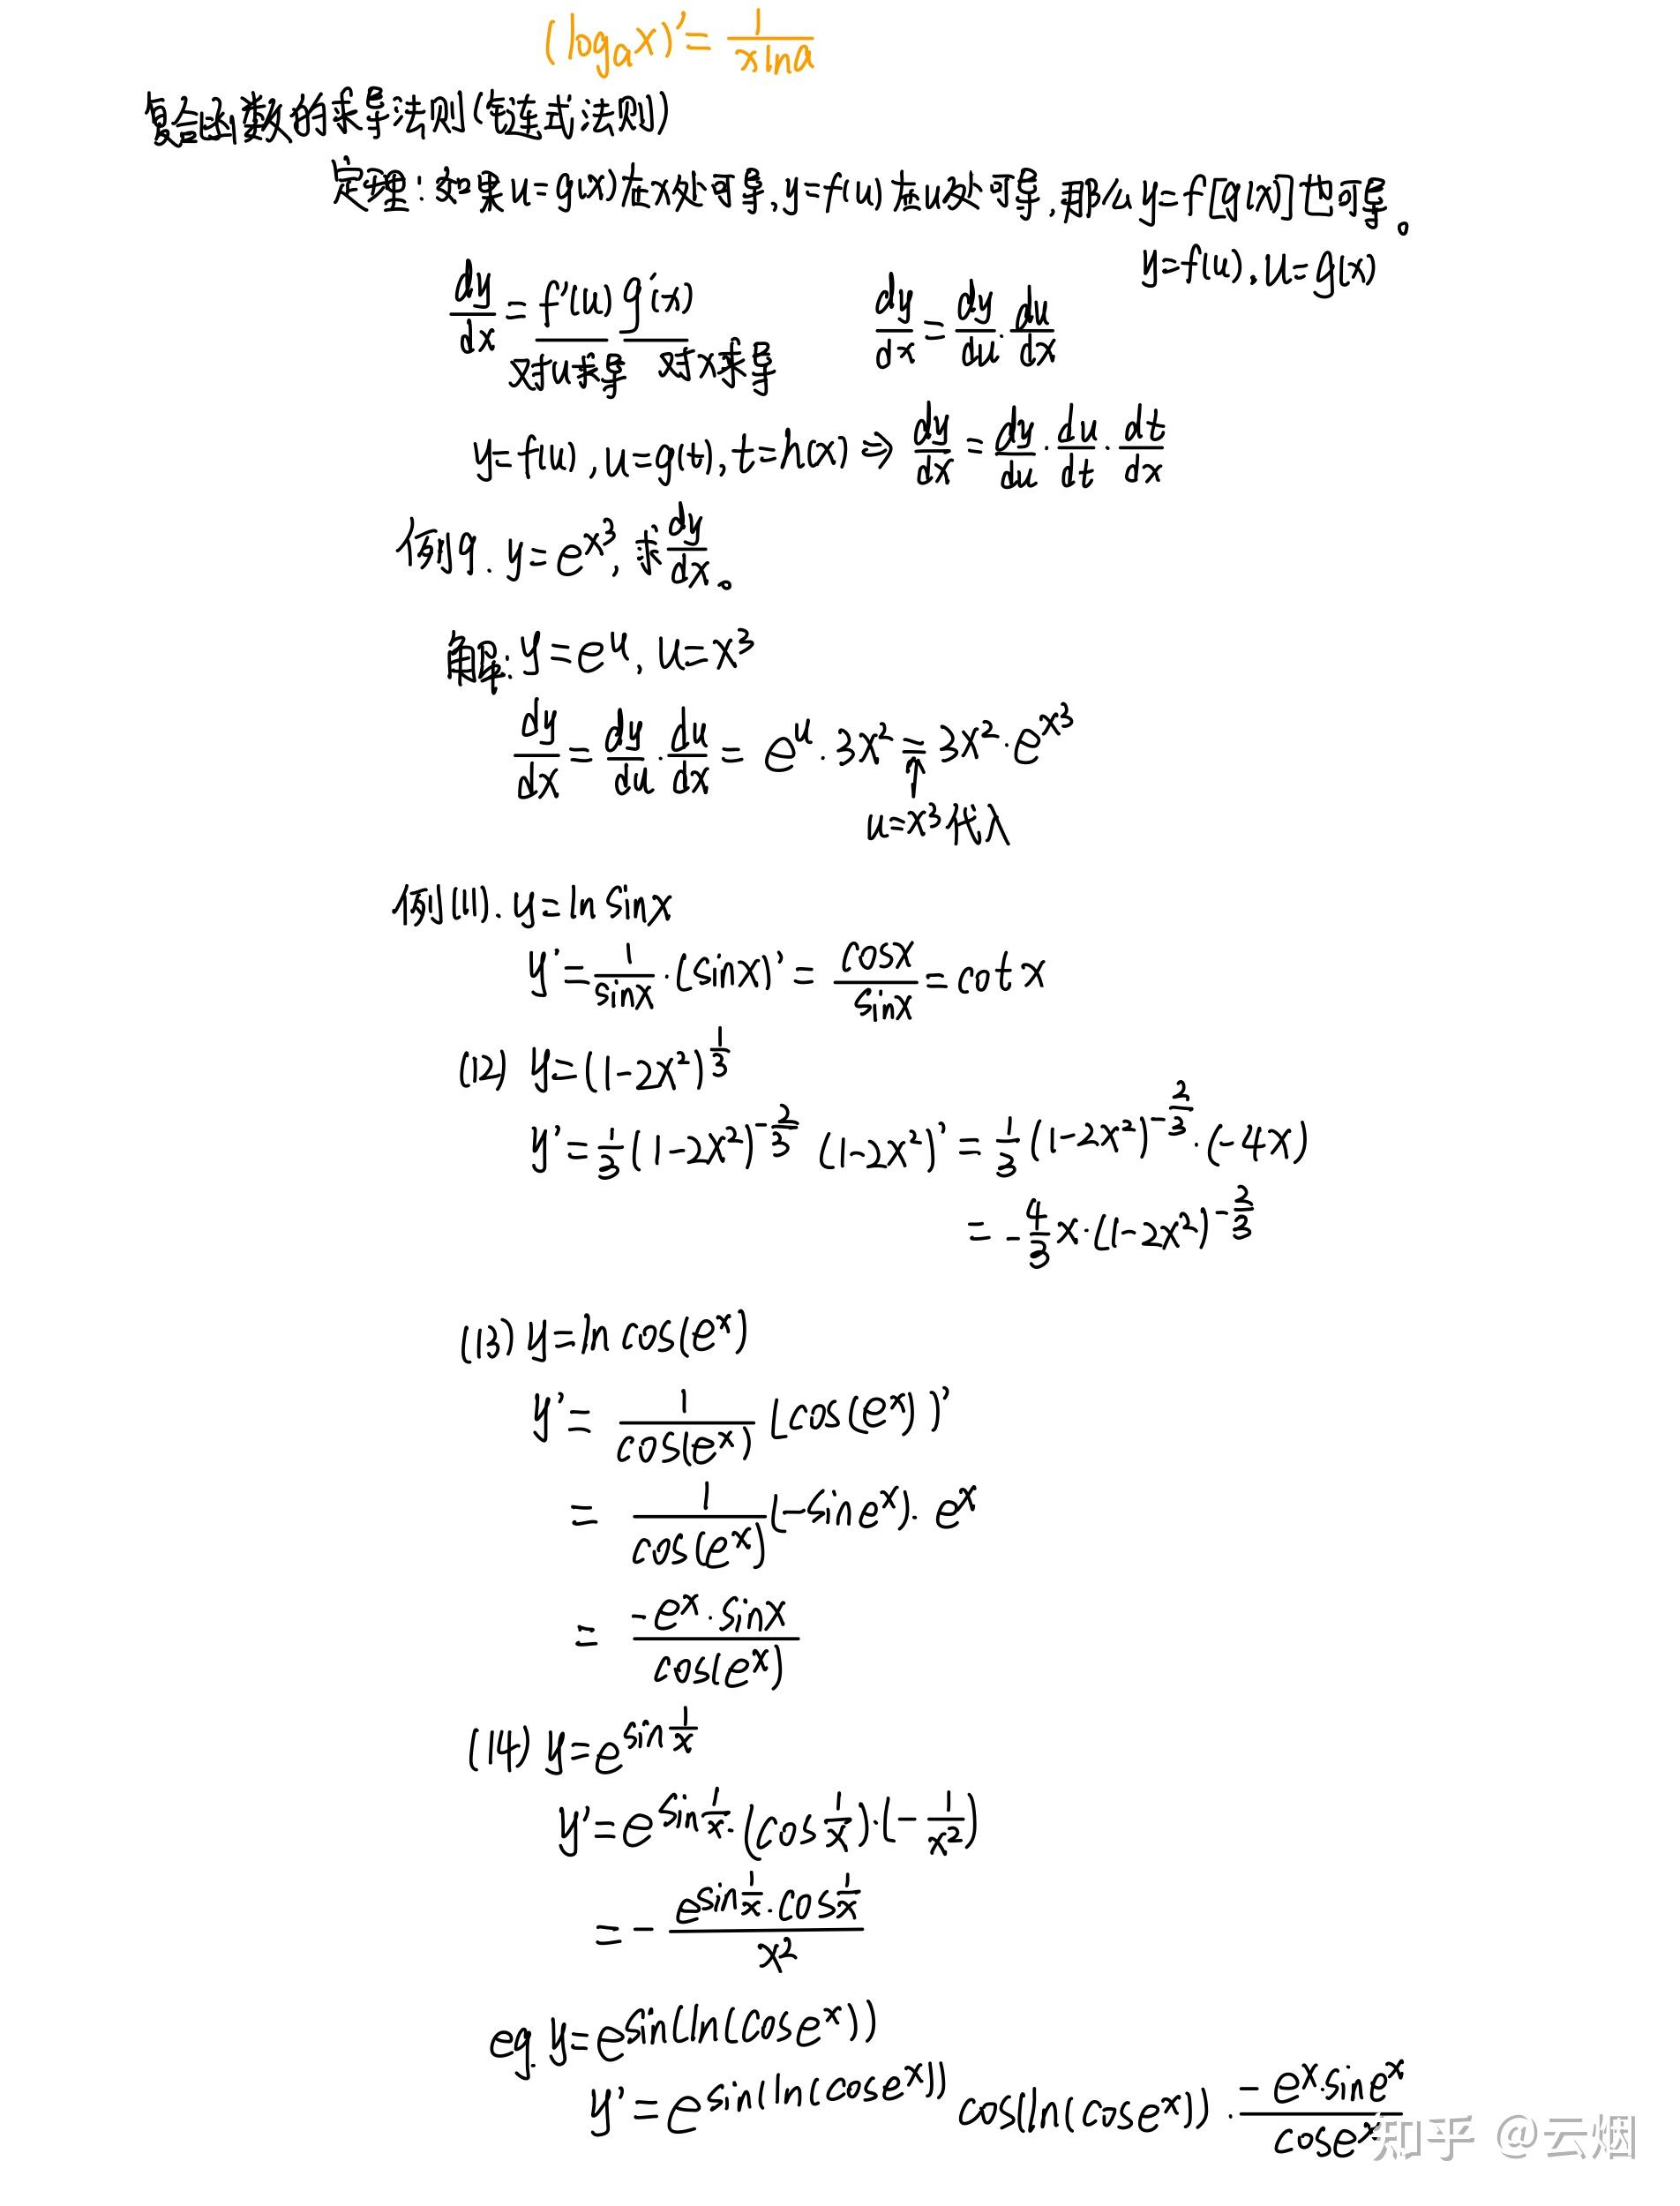 (logₐx)' = 1/(x ln a)
复合函数的求导法则(链式法则)
定理:如果u=g(x)在x处可导,y=f(u)在u处可导,那么y=f[g(x)]也可导。
y=f(u),u=g(x)
dy/dx = f'(u) g'(x)  dy/dx = dy/du · du/dx
对u求导 对x求导
y=f(u),u=g(t),t=h(x) ⇒ dy/dx = dy/du · du/dt · dt/dx
例9. y=e^(x³),求dy/dx。
解:y=e^u,u=x³
dy/dx = dy/du · du/dx = e^u · 3x² = 3x² · e^(x³)
↑
u=x³代入
例(11). y=ln sinx
y' = 1/sinx · (sinx)' = cosx/sinx = cotx
(12) y=(1-2x²)^(1/3)
y' = 1/3 (1-2x²)^(-2/3) (1-2x²)' = 1/3 (1-2x²)^(-2/3) · (-4x)
= -4/3 x · (1-2x²)^(-2/3)
(13) y=ln cos(e^x)
y' = 1/cos(e^x) [cos(e^x)]'
= 1/cos(e^x) (-sin e^x) · e^x
= (-e^x · sinx)/cos(e^x)
(14) y=e^(sin 1/x)
y' = e^(sin 1/x) · (cos 1/x) · (-1/x²)
= - (e^(sin 1/x) · cos 1/x)/x²
eg. y=e^(sin(ln(cos e^x)))
y' = e^(sin(ln(cos e^x))) cos(ln(cos e^x)) · (-e^x · sin e^x)/(cos e^x)
知乎 @云烟